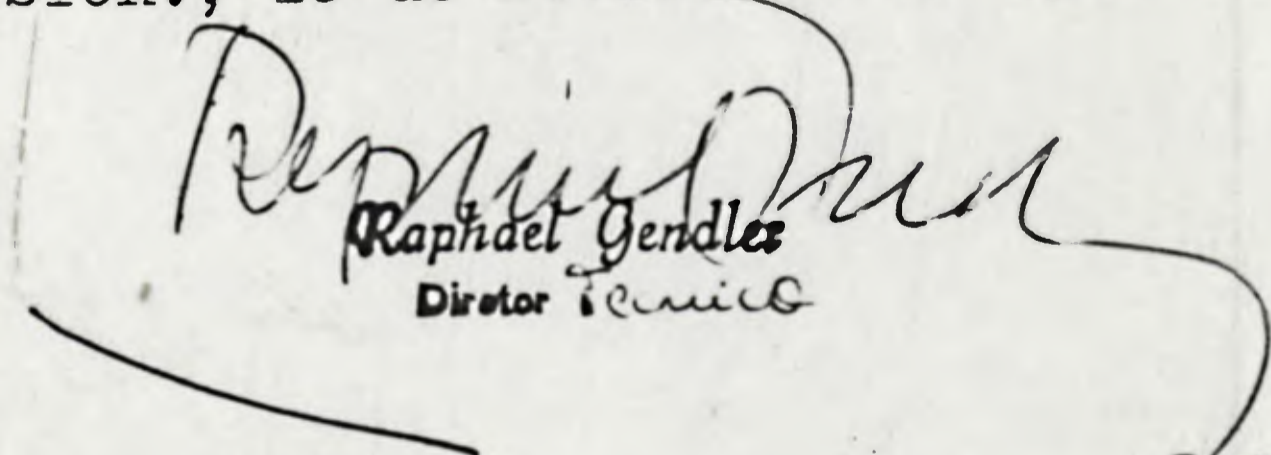 Raphael Gendler
Diretor Tecnico